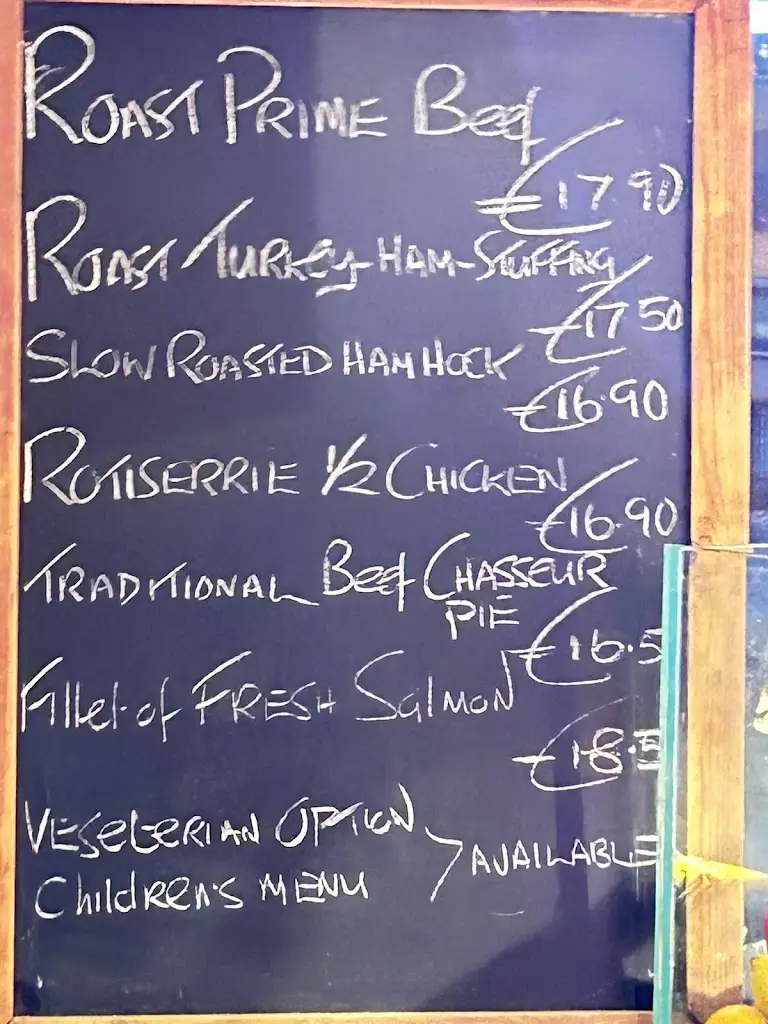 ROAST PRIME Beef
€17.90
ROAST TURKEY-HAM-STUFFING
€17.50
SLOW ROASTED HAM HOCK
€16.90
ROTISERRIE 1/2 CHICKEN
€16.90
TRADITIONAL Beef CHASSEUR
PIE
€16.5
Fillet of FRESH Salmon
€18.5
VEGETERIAN OPTION
Children's MENU > AVAILABLE